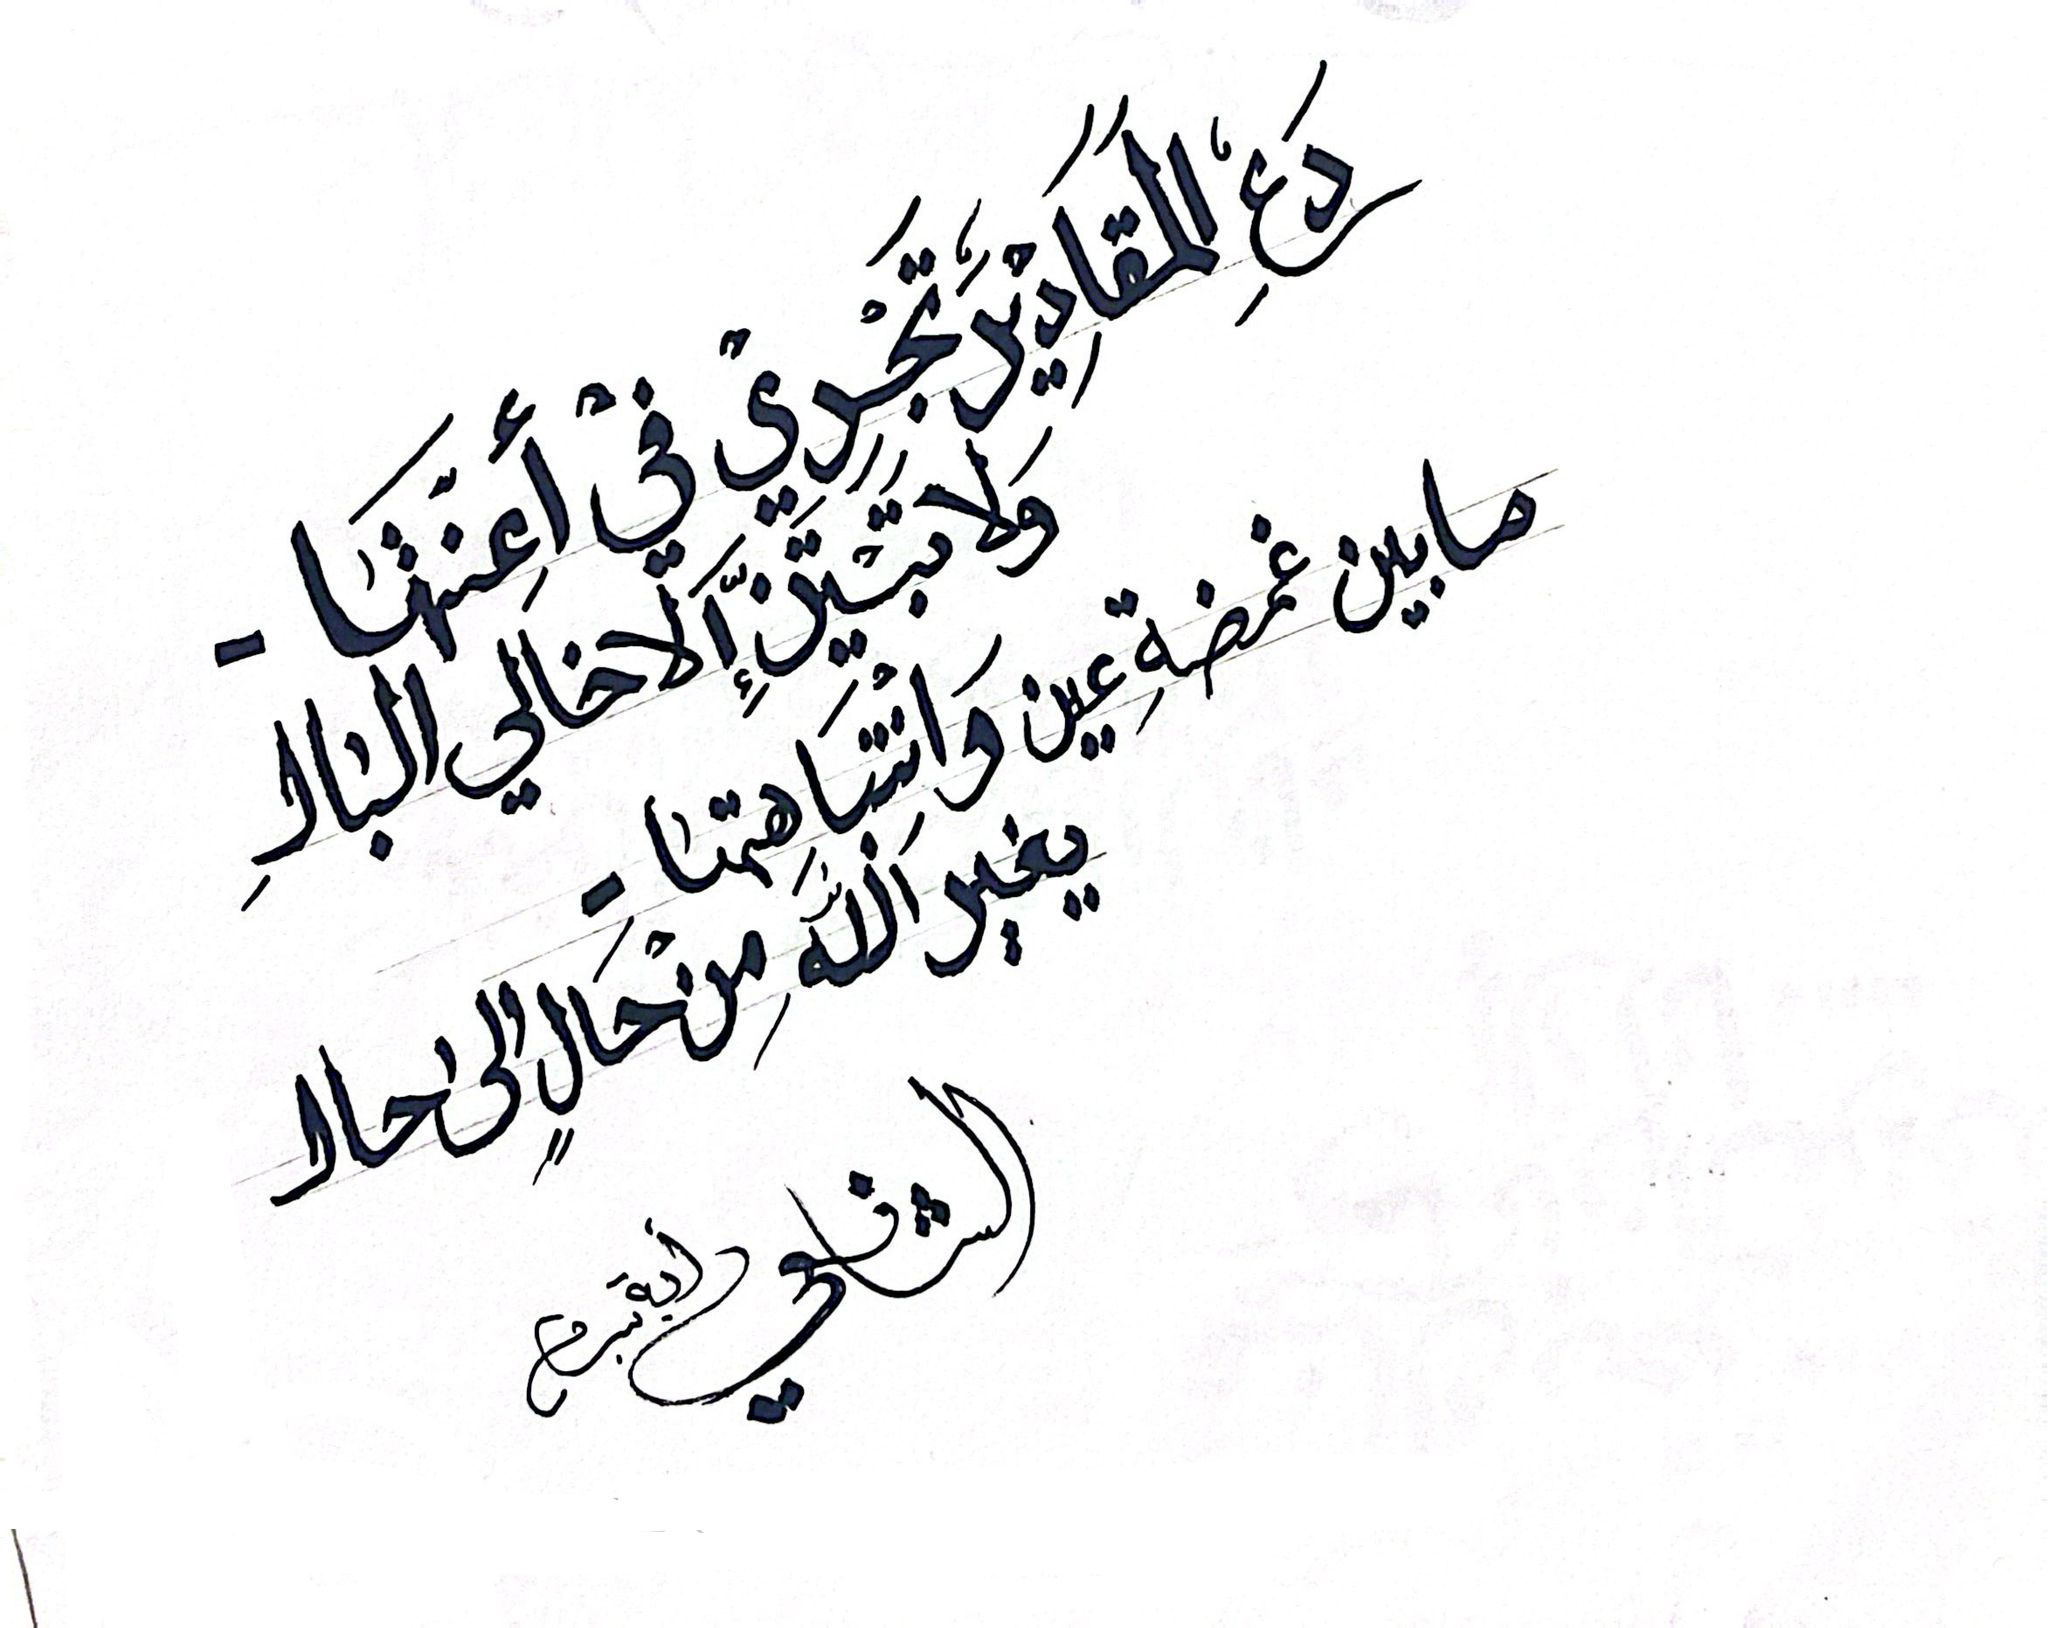 دَعِ المَقَادِيْرَ تَجْرِيْ فِيْ أَعِنَّتهَا -
وَلا تَبِيْتَنَّ إِلَّا خَالِي البَالِ
ما بين غمضةِ عين وَانْتبَاهتها -
يغير اللَّهُ مِنْ حَالٍ إلى حال
الشافعي